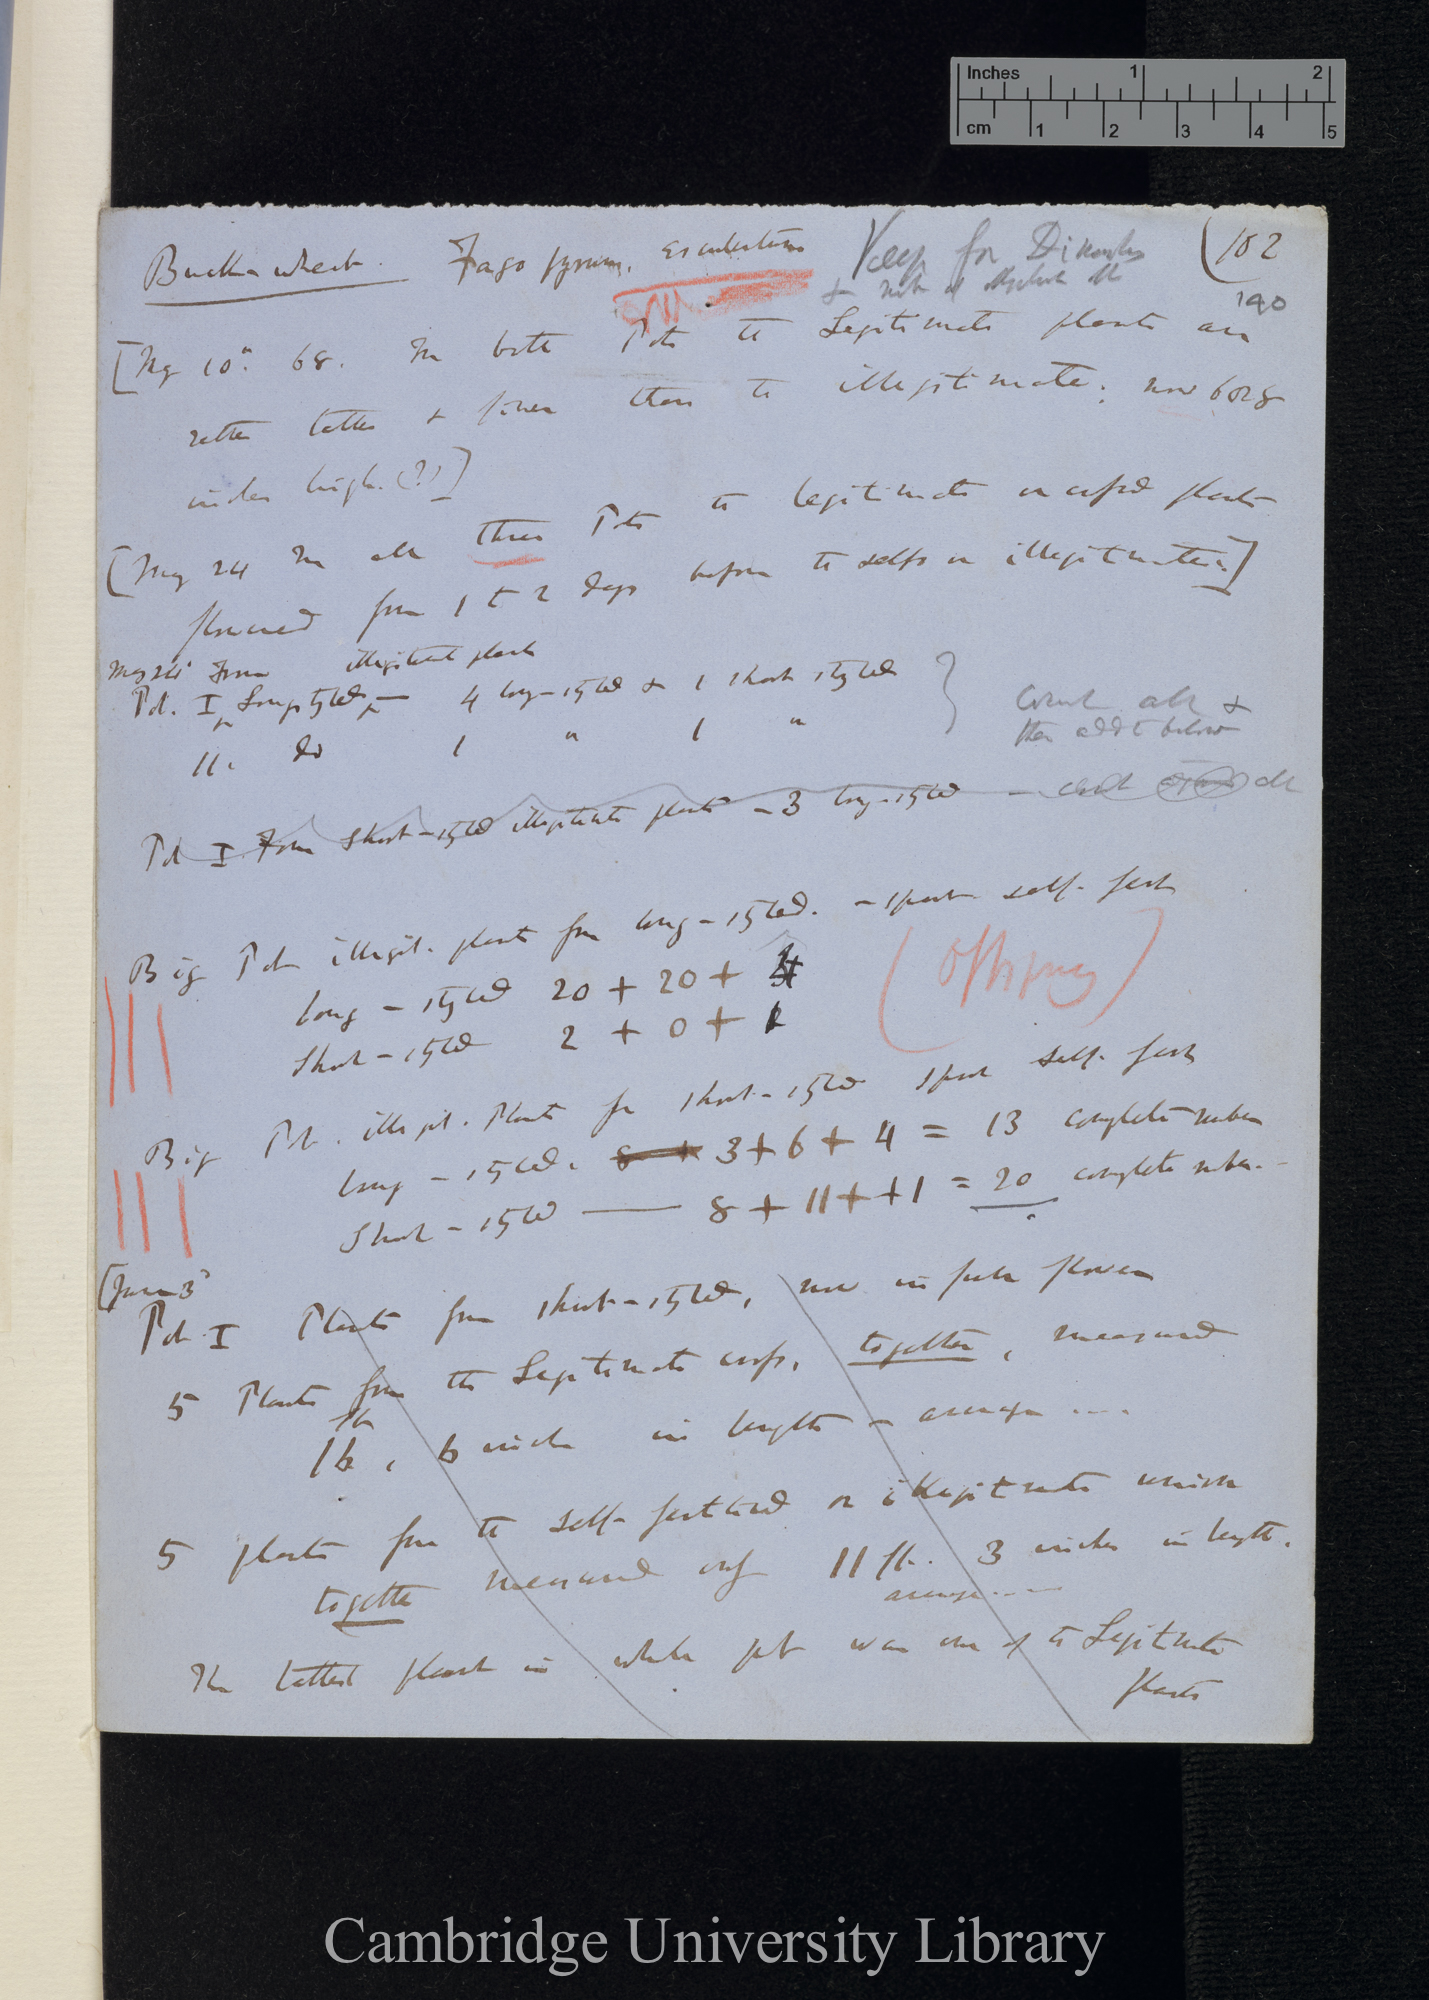 Inches 1 2
cm 1 2 3 4 5
Buckwheat. Fagopyrum. esculentum Keep for Dimorphs (102
190
[May 10th 68. In both Pots the Legitimate plants are
rather taller & finer than the illegitimate; now 6 or 8
inches high. (?)]
[May 24 In all three Pots the legitimate or crossed plants
flowered from 1 to 2 days before the selfs or illegitimates.]
May 26 From illegitimate plants
Pot. I Long-styled — 4 long-styled & 1 short styled } Count all &
II. do 1 " 1 " then add to below
Pot I From Short-styled illegitimate plants — 3 long-styled —
Big Pot illegit. plants from long-styled. — spont. self. fert
Long-styled 20 + 20 +
Short-styled 2 + 0 + 1
(Offspring)
Big Pot. illegit. Plants from short-styled spont self. fert
long-styled. 3 + 6 + 4 = 13 complete number
Short-styled — 8 + 11 + + 1 = 20 complete number. —
[June 3d
Pot. I Plants from short-styled, now in full flower
5 Plants from the Legitimate cross, together, measured
ft
16, 6 inches in length — average ....
5 plants from the self-fertilised or illegitimate union
together measured only 11 ft. 3 inches in length.
average....
The tallest plant in whole pot was one of the Legitimate
plants
Cambridge University Library